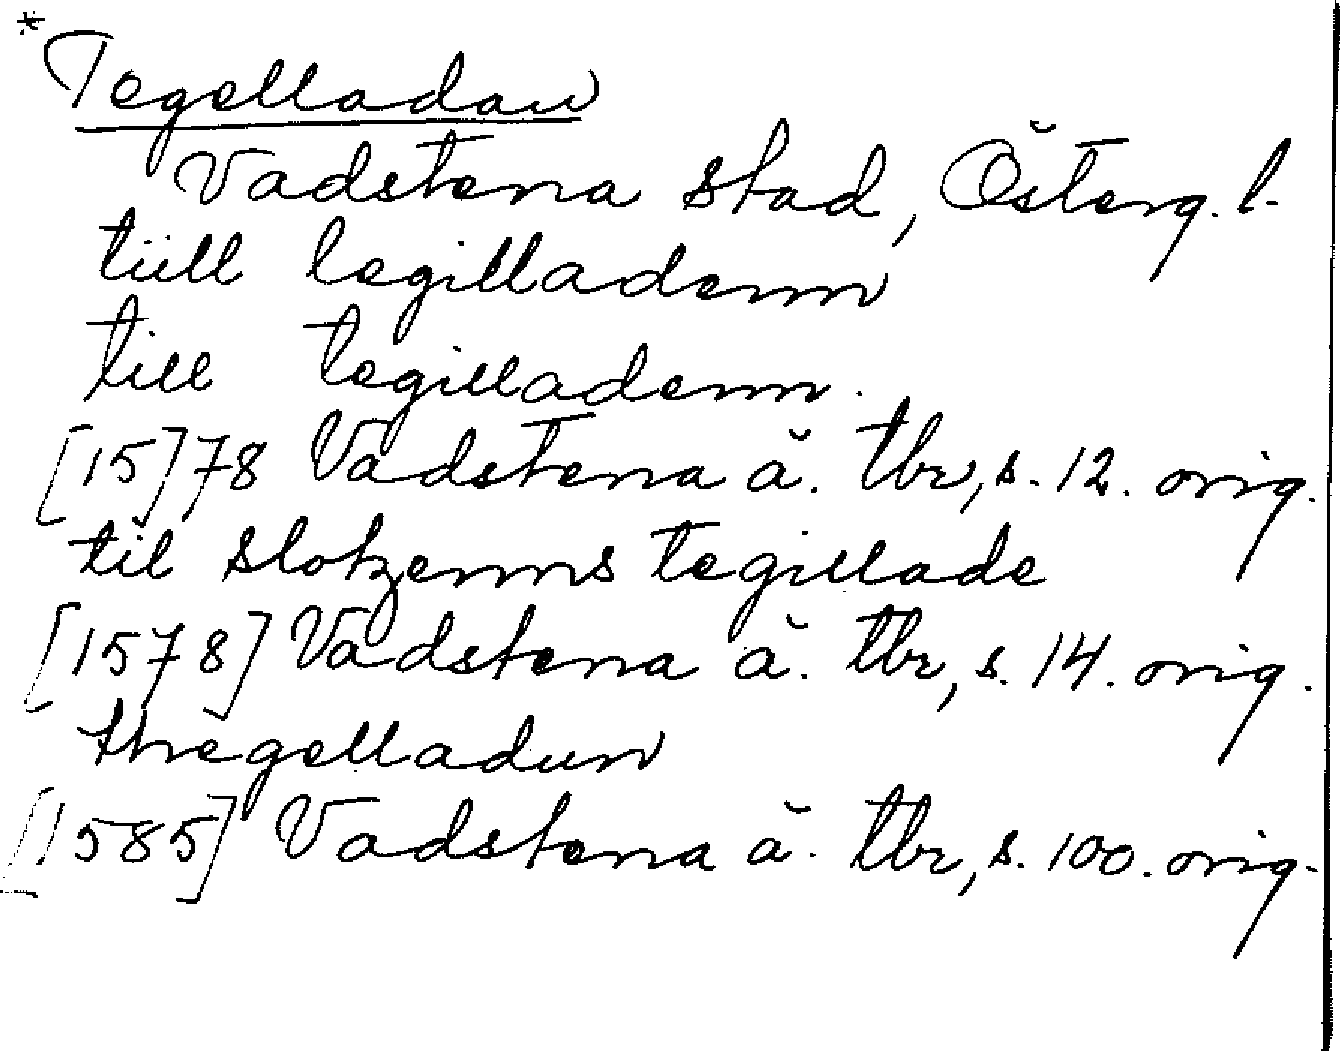 *Tegelladan
Vadstena stad, Österg. l.
tiill tegilladenn
till tegilladenn.
[15]78 Vadstena ä. tbr, s. 12. orig.
til slotzenns tegillade
[1578] Vadstena ä. tbr, s. 14. orig.
thegelladun
[1585] Vadstena ä. tbr, s. 100. orig.